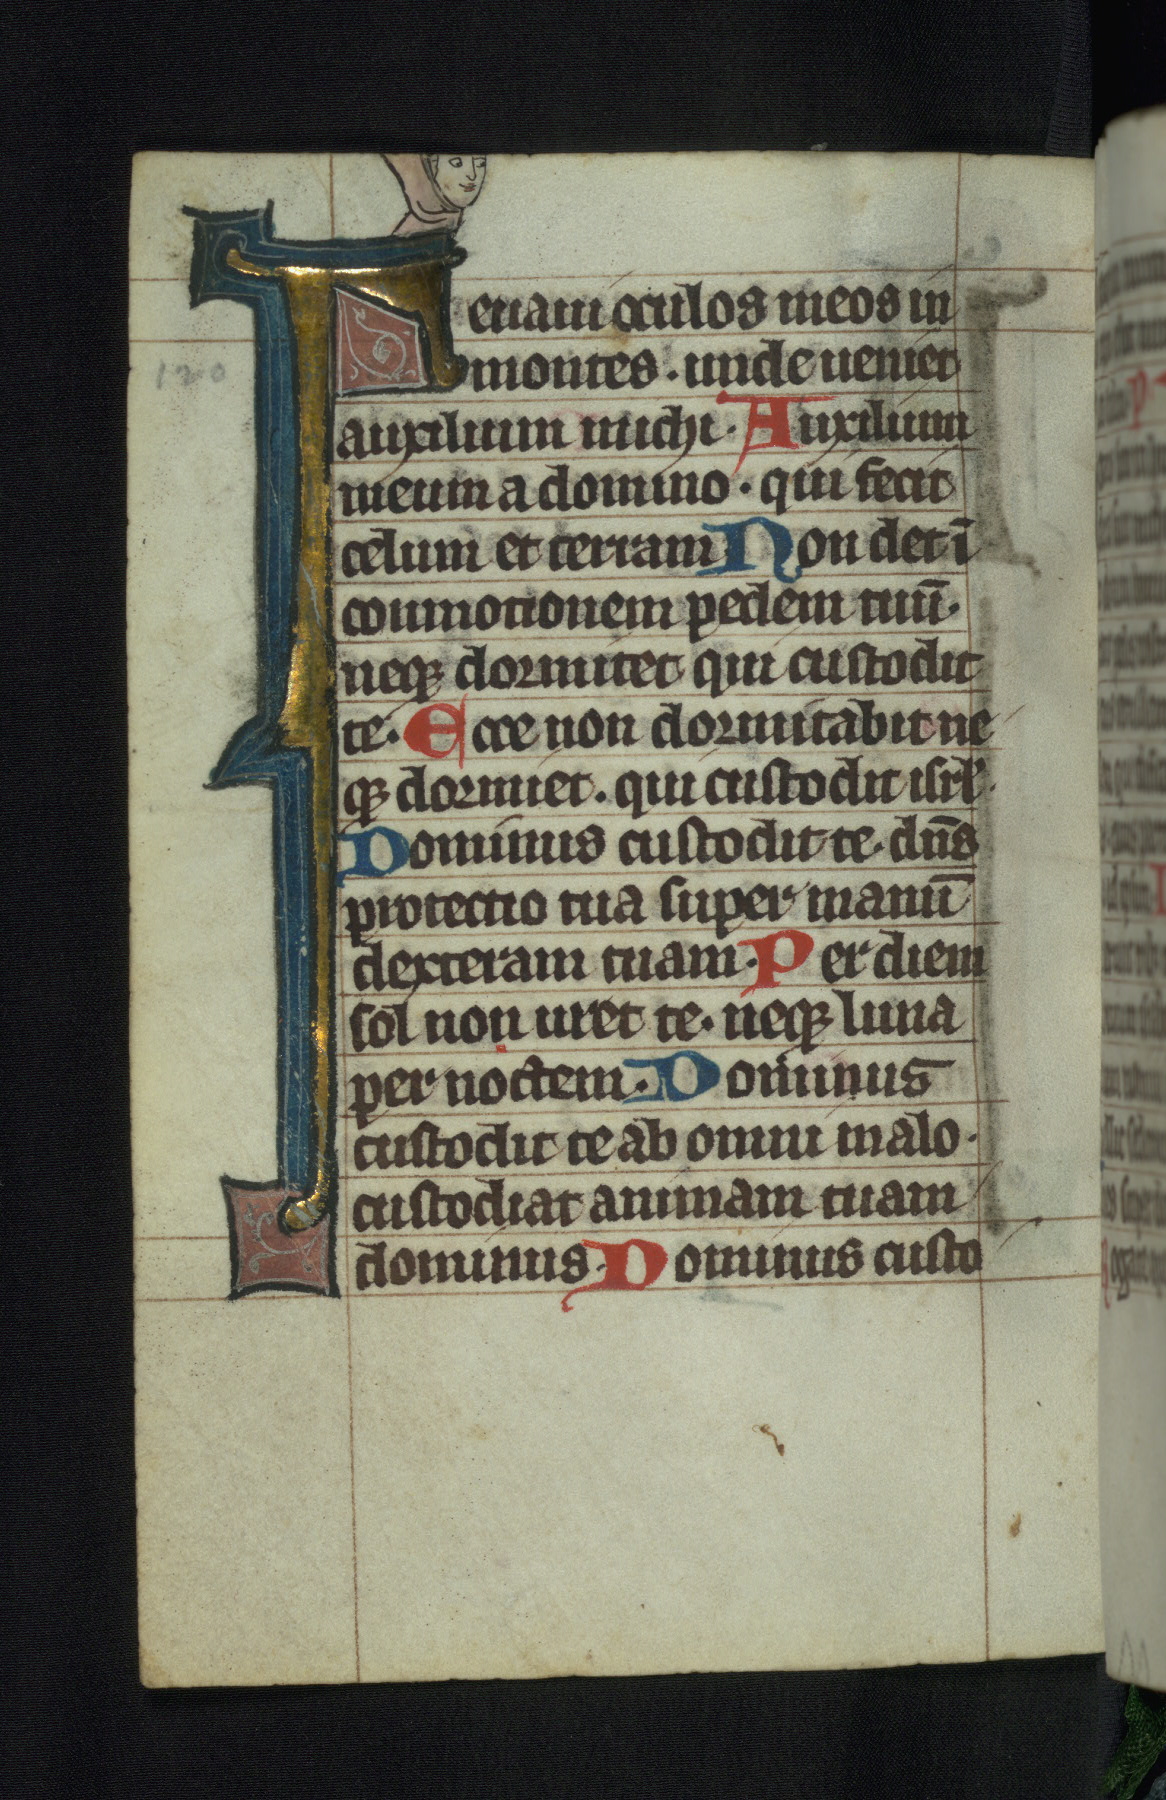 Leuam oculos meos in
montes · unde ueniet
120
auxilium michi · Auxilium
meum a domino · qui fecit
celum et terram Non det ī
conmotionem pedem tuū ·
neqꝫ dormitet qui custodit
te · Ecce non dormitabit ne
qꝫ dormiet · qui custodit isrl' ·
Dominus custodit te · dn̄s
protectio tua super manū
dexteram tuam · Per diem
sol non uret te · neqꝫ luna
per noctem · Dominus
custodit te ab omni malo ·
custodiat animam tuam
dominus · Dominus custo